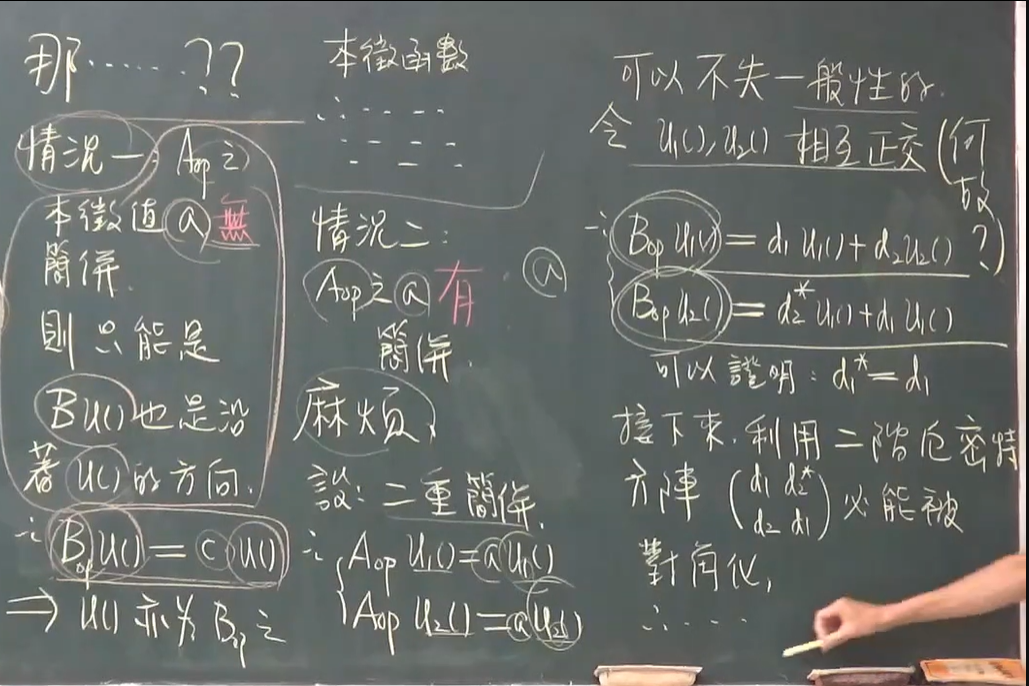 那……??
情況一：Aop 之
本徵值 a 無
簡併.
則只能是
BU()也是沿
著 U()的方向.
∴ Bop U() = c U()
⇒ U() 亦为 Bop 之
本徵函數
情況二：
Aop 之 a 有
簡併.
麻煩,
設：二重簡併.
∴ Aop U₁() = a U₁()
Aop U₂() = a U₂()
a
可以不失一般性的.
令 U₁(), U₂() 相互正交 (何
故
?)
∴ Bop U₁() = d₁ U₁() + d₂ U₂()
Bop U₂() = d₂* U₁() + d₁ U₁()
可以證明：d₁* = d₁
接下來,利用二階厄密特
方陣 (d₁ d₂*
d₂ d₁) 必能被
對角化,
∴ ....